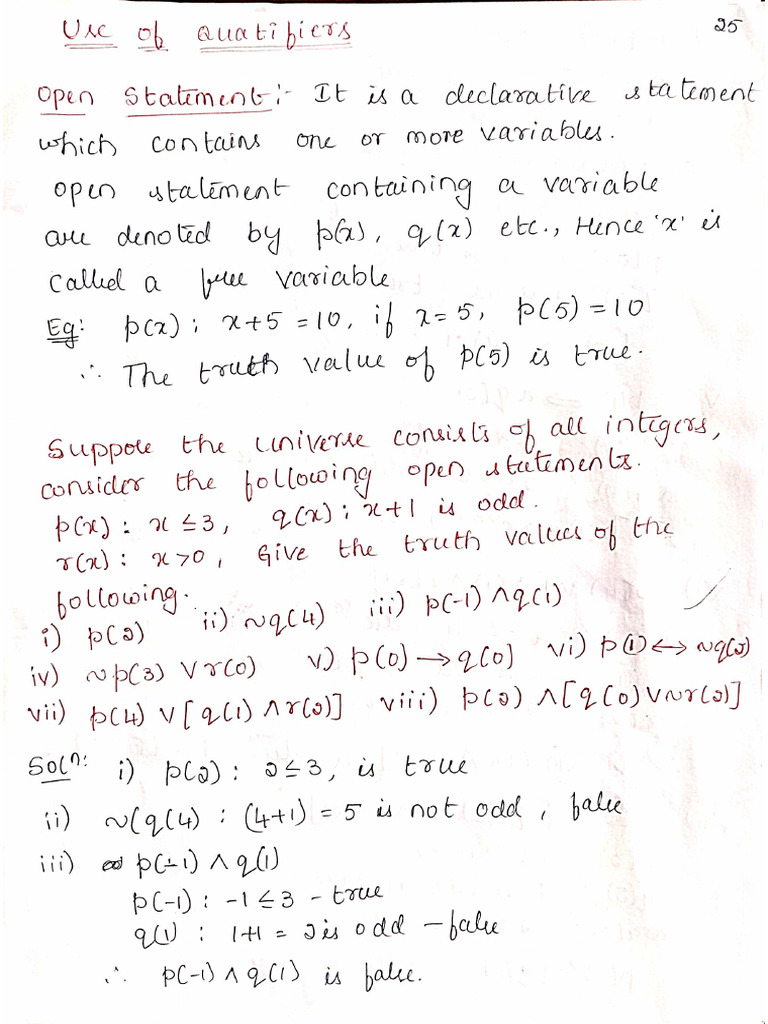 Use of Quatifiers
25
Open Statement:- It is a declarative statement
which contains one or more variables.
open statement containing a variable
are denoted by p(x), q(x) etc., Hence 'x' is
called a free variable
Eg: p(x): x+5 = 10, if x = 5, p(5) = 10
∴ The truth value of p(5) is true.
Suppose the universe consists of all integers,
consider the following open statements.
p(x) : x ≤ 3, q(x) : x+1 is odd.
r(x) : x > 0, Give the truth values of the
following.
i) p(2) ii) ~q(4) iii) p(-1) ∧ q(1)
iv) ~p(3) ∨ r(0) v) p(0) → q(0] vi) p(1) ↔ ~q(2)
vii) p(4) ∨ [q(1) ∧ r(2)] viii) p(2) ∧ [q(0) ∨ ~r(2)]
Solⁿ: i) p(2) : 2 ≤ 3, is true
ii) ~(q(4) : (4+1) = 5 is not odd, false
iii) p(-1) ∧ q(1)
p(-1) : -1 ≤ 3 - true
q(1) : 1+1 = 2 is odd - false
∴ p(-1) ∧ q(1) is false.